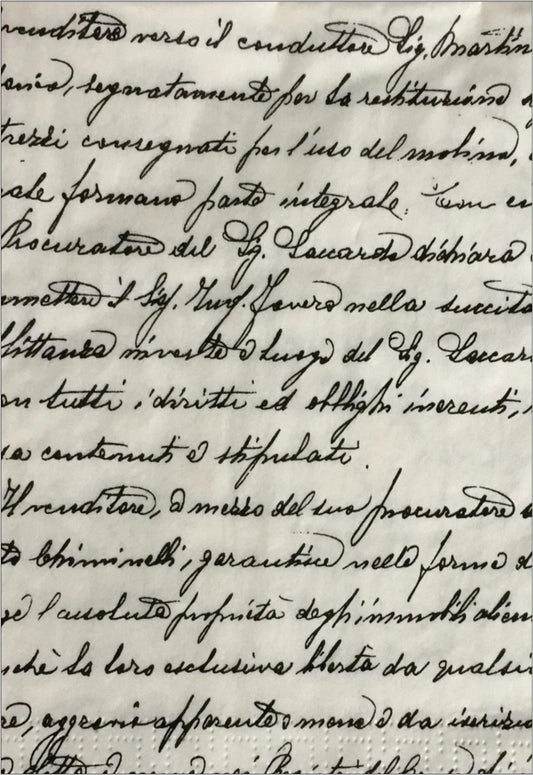 venditore verso il conduttore Sig. Martin
onio, segnatamente per la restituzione
trezzi consegnati per l'uso del molino,
ale formano parte integrale. Con
Procuratore del Sig. Saccardo dichiara
emettere il Sig. Favero nella succita
fittanza invece e luogo del Sig. Saccar
on tutti i diritti ed obblighi inerenti,
sa contenuti e stipulati.
Il venditore, a mezzo del suo procuratore
to Chiminelli, garantisce nelle forme d
ge l'assoluta proprietà degli immobili alien
nchè la loro esclusiva libertà da qualsi
re, aggravio apparente o meno e da iscrizio